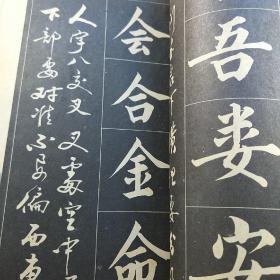 吾
娄
安
会
合
金
命
人字八交叉 叉處空中
下部要对准 不要偏西東